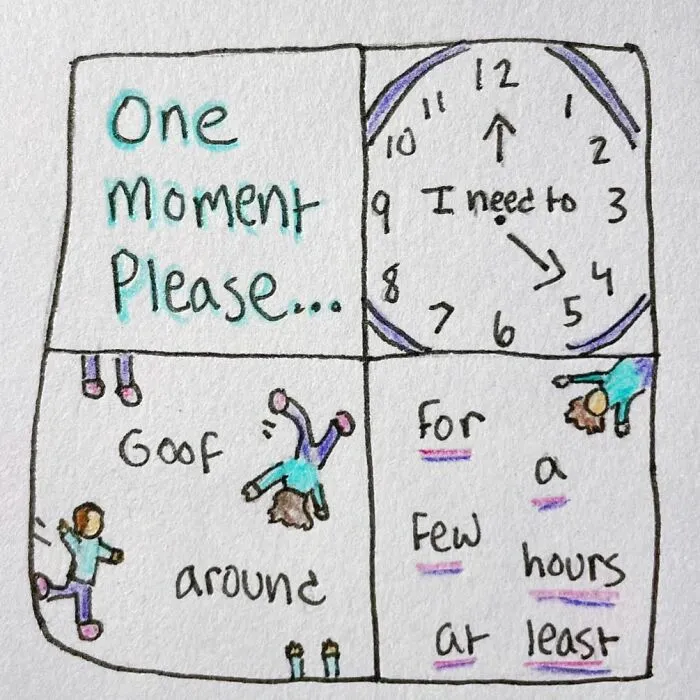 One
moment
Please...
12
11
1
10
2
9
I need to
3
8
4
7
5
6
Goof
around
For
a
Few
hours
at
least